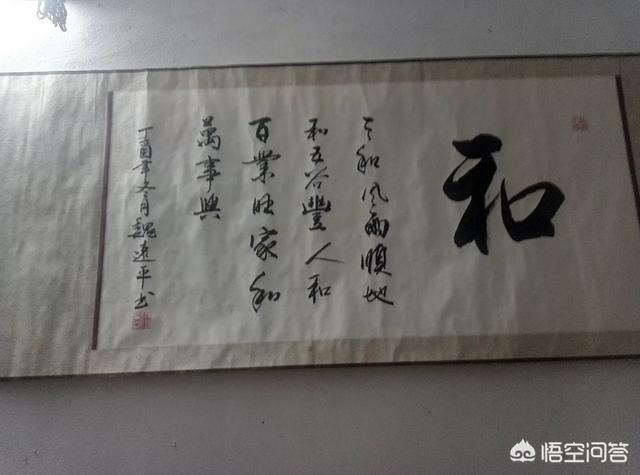 和
天和风雨順地
和五谷豐人和
百業旺家和
萬事興
丁酉年文月魏遠平书
悟空问答